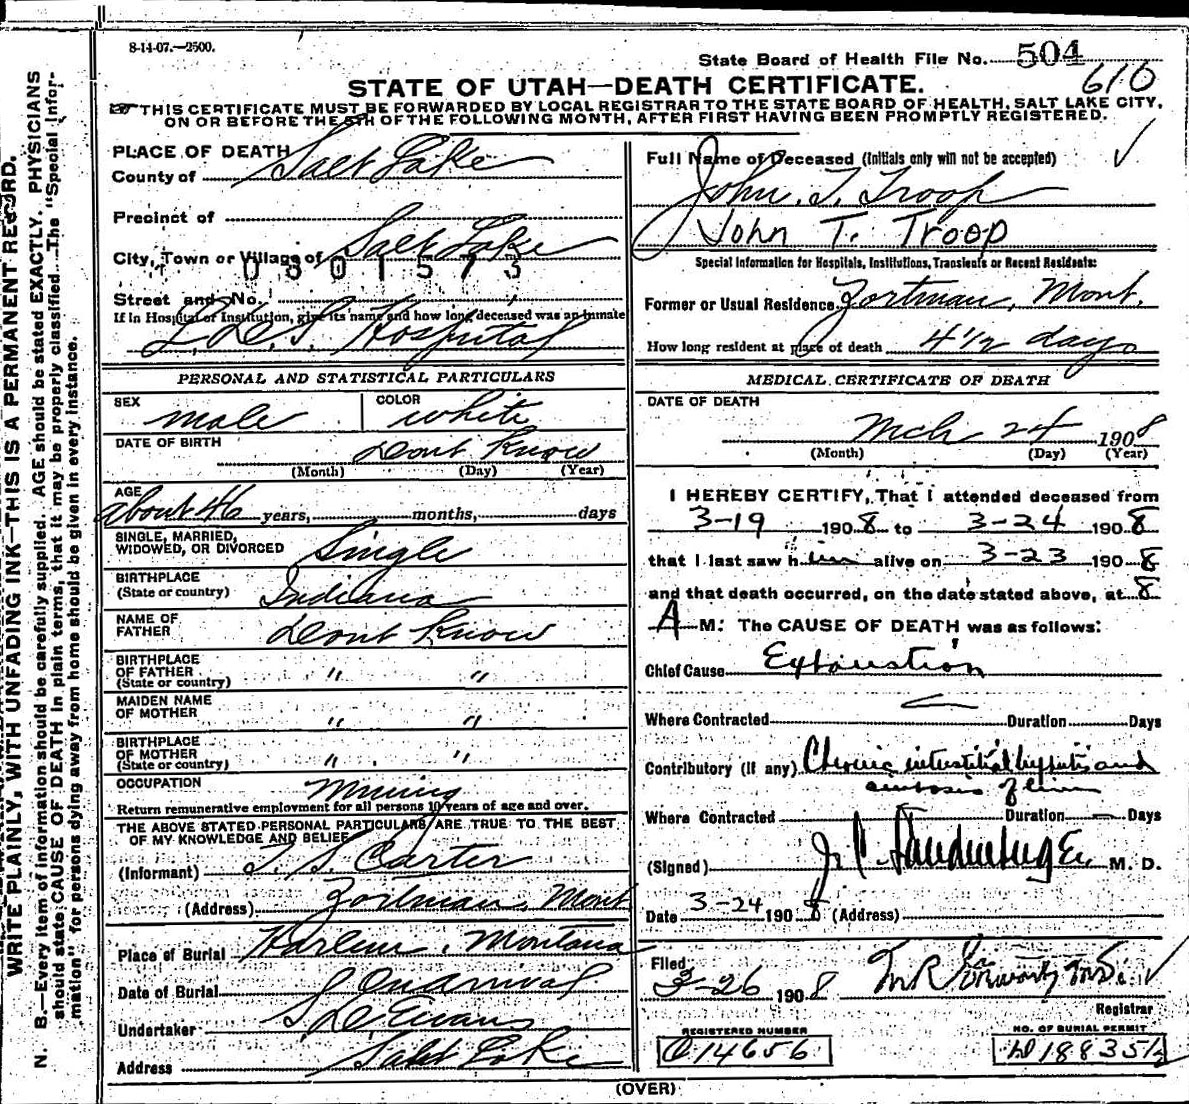 8-14-07.—2500.
State Board of Health File No. 504
610
STATE OF UTAH—DEATH CERTIFICATE.
THIS CERTIFICATE MUST BE FORWARDED BY LOCAL REGISTRAR TO THE STATE BOARD OF HEALTH, SALT LAKE CITY,
ON OR BEFORE THE 5TH OF THE FOLLOWING MONTH, AFTER FIRST HAVING BEEN PROMPTLY REGISTERED.
WRITE PLAINLY, WITH UNFADING INK—THIS IS A PERMANENT RECORD.
N. B.—Every item of information should be carefully supplied. AGE should be stated EXACTLY. PHYSICIANS
should state CAUSE OF DEATH in plain terms, that it may be properly classified. The "Special Infor-
mation" for persons dying away from home should be given in every instance.
PLACE OF DEATH
County of Salt Lake
Precinct of
City, Town or Village of Salt Lake
0801573
Street and No.
If in Hospital or Institution, give its name and how long deceased was an inmate
L.D.S. Hospital
PERSONAL AND STATISTICAL PARTICULARS
SEX male COLOR white
DATE OF BIRTH Dont Know
(Month) (Day) (Year)
AGE about 46 years, months, days
SINGLE, MARRIED,
WIDOWED, OR DIVORCED Single
BIRTHPLACE
(State or country) Indiana
NAME OF
FATHER Dont Know
BIRTHPLACE
OF FATHER
(State or country) " "
MAIDEN NAME
OF MOTHER " "
BIRTHPLACE
OF MOTHER
(State or country) " "
OCCUPATION Mining
Return remunerative employment for all persons 10 years of age and over.
THE ABOVE STATED PERSONAL PARTICULARS ARE TRUE TO THE BEST
OF MY KNOWLEDGE AND BELIEF
(Informant) Carter
(Address) Zortman, Mont
Place of Burial Harlem, Montana
Date of Burial On arrival
Undertaker Evans
Address Salt Lake
Full Name of Deceased (Initials only will not be accepted)
John. T. Troop
John T. Troop
Special Information for Hospitals, Institutions, Transients or Recent Residents:
Former or Usual Residence Zortman, Mont.
How long resident at place of death 4½ days
MEDICAL CERTIFICATE OF DEATH
DATE OF DEATH
Mch 24 1908
(Month) (Day) (Year)
I HEREBY CERTIFY, That I attended deceased from
3-19 1908 to 3-24 1908
that I last saw him alive on 3-23 1908
and that death occurred, on the date stated above, at 8
A M. The CAUSE OF DEATH was as follows:
Chief Cause Exhaustion
Where Contracted Duration Days
Contributory (if any) Chronic interstitial and
of liver
Where Contracted Duration — Days
(Signed) M. D.
Date 3-24 1908 (Address)
Filed
3-26 1908
Registrar
REGISTERED NUMBER
O 14656
NO. OF BURIAL PERMIT
18835½
(OVER)